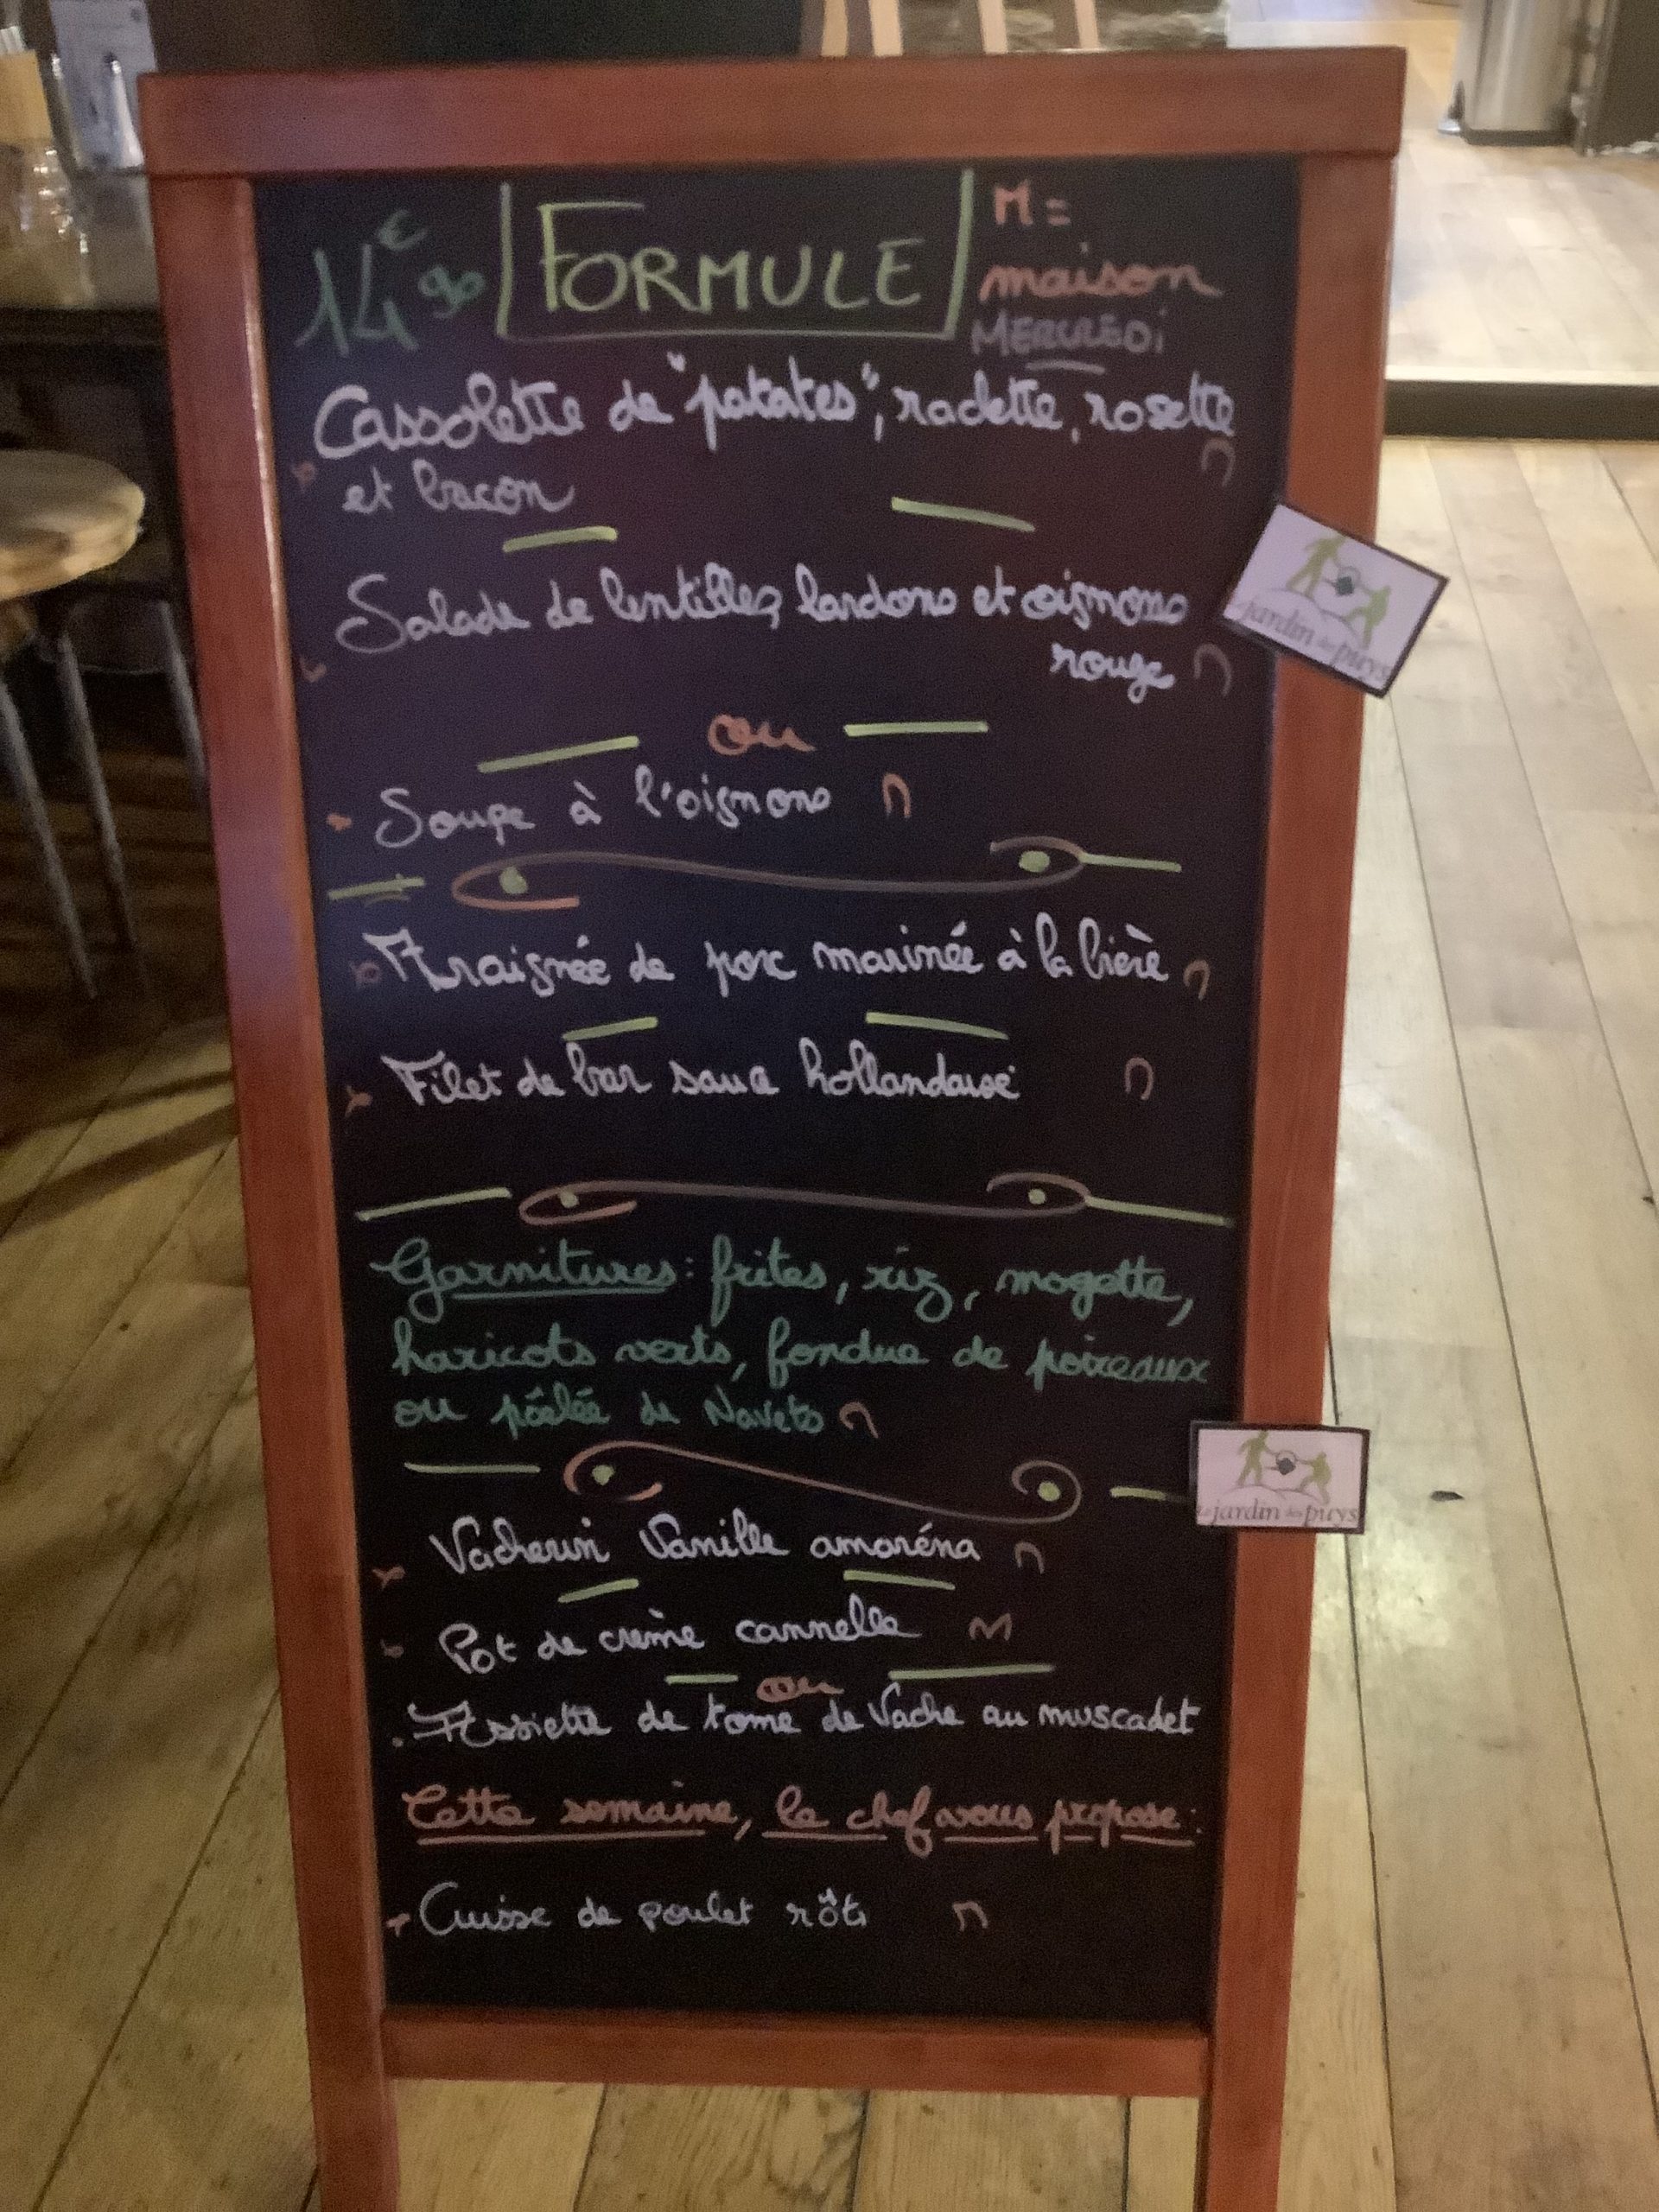 14€90
FORMULE
M =
maison
MERCREDI
Cassolette de "patates", raclette, rosette
et bacon M
Salade de lentilles, lardons et oignons
rouge M
ou
Soupe à l'oignons M
Araignée de porc marinée à la bière M
Filet de bar sauce hollandaise M
Garnitures: frites, riz, mogette,
haricots verts, fondue de poireaux
ou pôélée de Navets M
Vacherin Vanille amaréna M
Pot de crème cannelle M
ou
Assiette de tome de Vache au muscadet
Cette semaine, le chef vous propose:
Cuisse de poulet rôti M
Le jardin des puys
Le jardin des puys